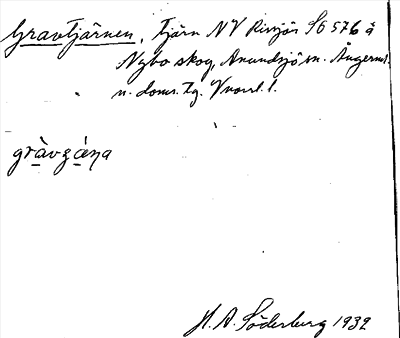 Gravtjärnen, Tjärn NV Rissjön S6576 å
Nybo skog, Anundsjö sn. Ångerml.
n. doms. Tg.
gràvʒáṇa
H. A. Söderberg 1932